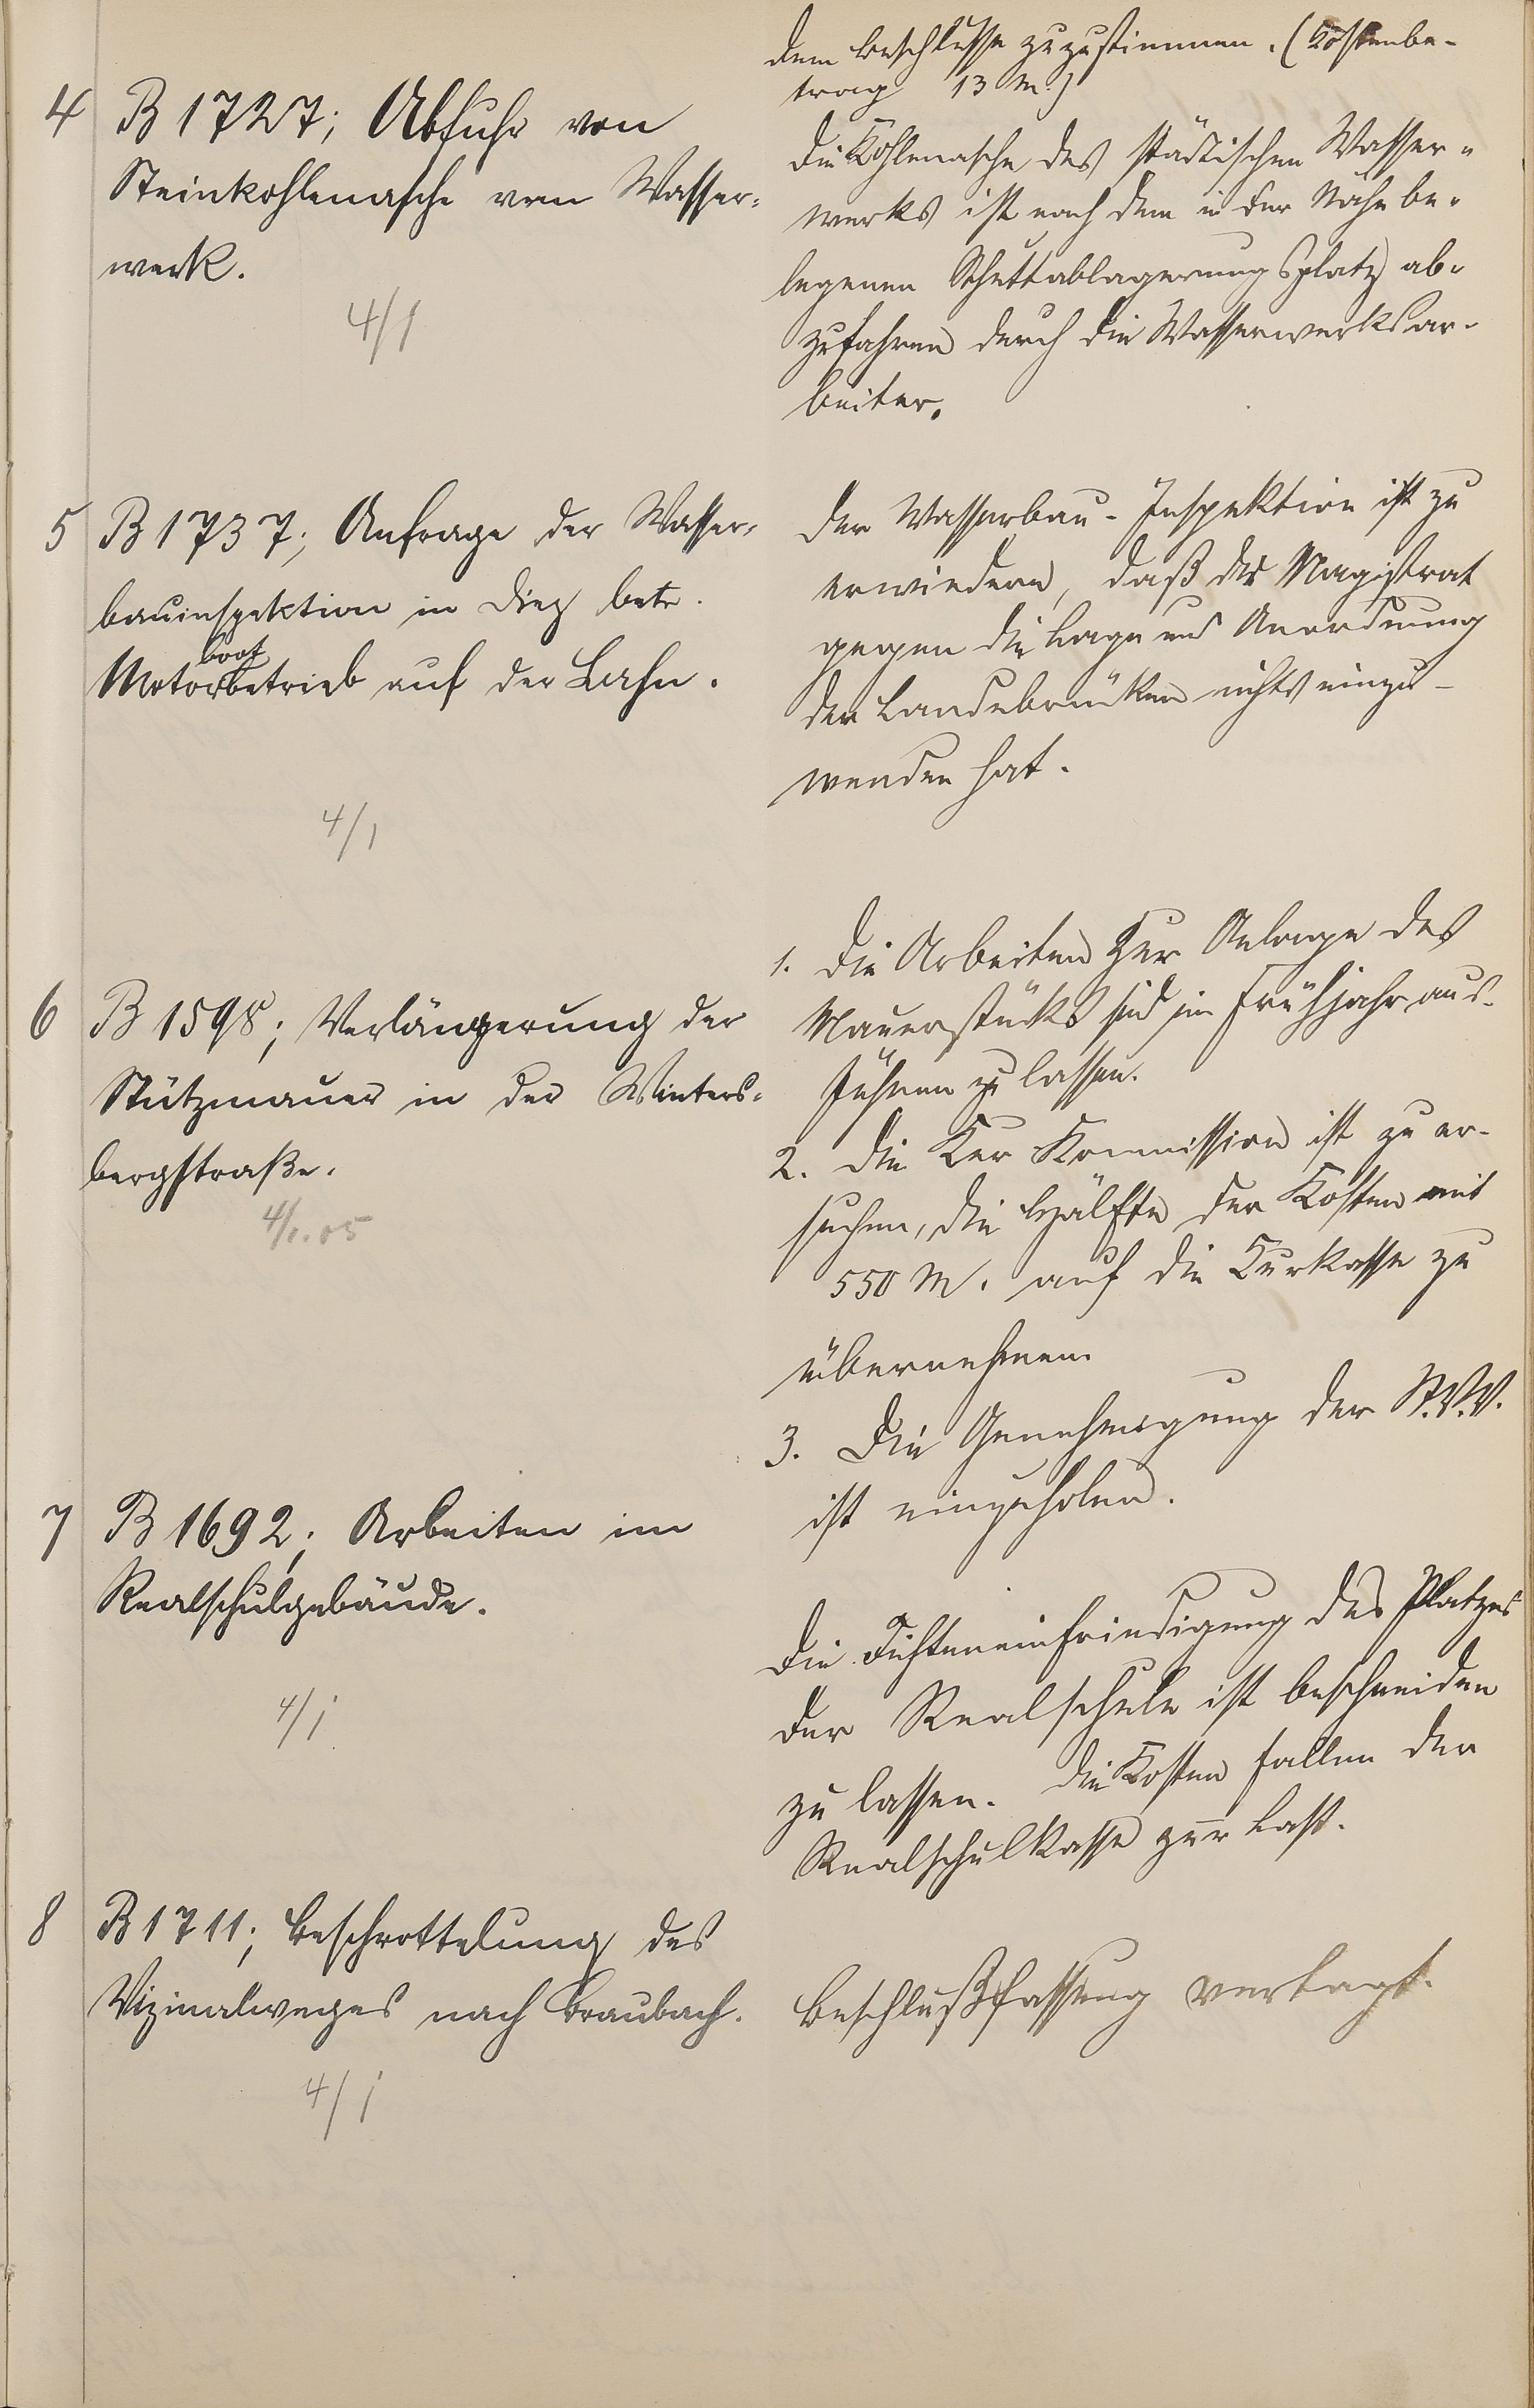 dem Beschlusse zuzustimmen. (Kostenbe-
trag 13 M.)
4 B 1727; Abfuhr von
Steinkohlenasche vom Wasser-
werk.
4/1
Die Kohlenasche des städtischen Wasser-
werks ist nach dem in der Nähe be-
legenen Schuttablagerungsplatz ab-
zufahren durch die Wasserwerksar-
beiter.
5 B 1737; Anfrage der Wasser-
bauinspektion in Diez betr.
boot
Motorbetrieb auf der Lahn.
4/1
Der Wasserbau-Inspektion ist zu
erwiedern, daß der Magistrat
gegen die Lage und Anordnung
der Landebrücken nichts einzu-
wenden hat.
6 B 1598; Verlängerung der
Stützmauer in der Winters-
bergstraße.
4/1.05
1. Die Arbeiten zur Anlage des
Mauerstücks sind im Frühjahr aus-
führen zu lassen.
2. Die Kur Kommission ist zu er-
suchen, die Hälfte der Kosten mit
550 M. auf die Kurkasse zu
übernehmen.
3. Die Genehmigung der St.V.V.
ist einzuholen.
7 B 1692; Arbeiten im
Realschulgebäude.
4/1
Die Fichteneinfriedigung des Platzes
der Realschule ist beschneiden
zu lassen. Die Kosten fallen der
Realschulkasse zur Last.
8 B 1711; Beschrottelung des
Vizinalweges nach Braubach.
4/1
Beschlußfassung vertagt.